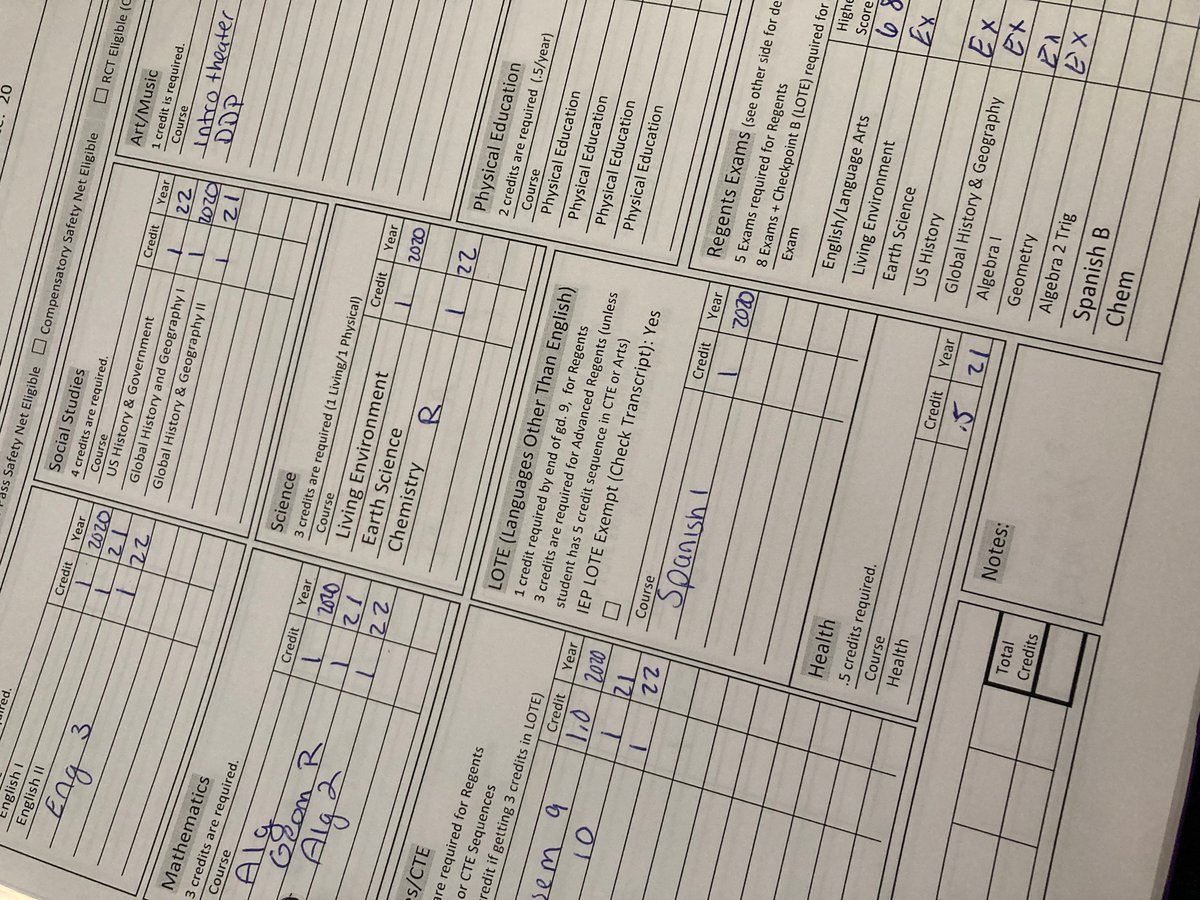 20
ass Safety Net Eligible ☐ Compensatory Safety Net Eligible ☐ RCT Eligible (
uired.
English I
English II
Eng 3
Credit Year
1 2020
1 21
1 22
Social Studies
4 credits are required.
Course Credit Year
US History & Government 1 22
Global History and Geography I 1 2020
Global History & Geography II 1 21
Art/Music
1 credit is required.
Course
Intro theater
DDP
Mathematics
3 credits are required.
Course Credit Year
Alg 1 2020
Geom R 1 21
Alg 2 1 22
Science
3 credits are required (1 Living/1 Physical)
Course Credit Year
Living Environment 1 2020
Earth Science
Chemistry R 1 22
Physical Education
2 credits are required (.5/year)
Course
Physical Education
Physical Education
Physical Education
Physical Education
s/CTE
are required for Regents
or CTE Sequences
redit if getting 3 credits in LOTE)
Credit Year
sem 9 1.0 2020
10 1 21
1 22
LOTE (Languages Other Than English)
1 credit required by end of gd. 9, for Regents
3 credits are required for Advanced Regents (unless
student has 5 credit sequence in CTE or Arts)
IEP LOTE Exempt (Check Transcript): Yes
☐
Course Credit Year
Spanish 1 1 2020
Health
.5 credits required.
Course Credit Year
Health .5 21
Regents Exams (see other side for de
5 Exams required for Regents
8 Exams + Checkpoint B (LOTE) required for
Exam Highe
Score
English/Language Arts 68
Living Environment Ex
Earth Science
US History Ex
Global History & Geography Ex
Algebra I Ex
Geometry Ex
Algebra 2 Trig
Spanish B
Chem
Total
Credits
Notes: